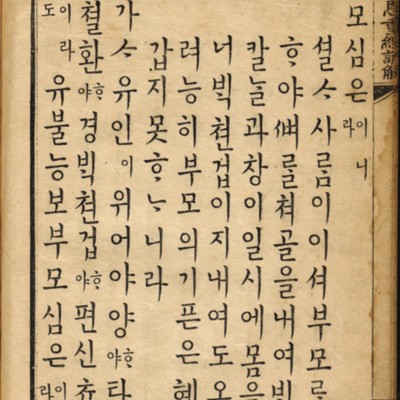 恩重經諺解
모심은이니라
셜ᄉᆞ사ᄅᆞᆷ이이셔부모
ᄒᆞ야ᄲᅧ를쳐골을내여
칼ᄂᆞᆯ과창이일시에몸을
너ᄇᆡᆨ쳔겁이지내여도오
려능히부모의기픈은혜
갑지못ᄒᆞᄂᆞ니라
가ᄉᆞ유인이위어야양ᄒᆞ야타
쳘환ᄒᆞ야경ᄇᆡᆨ쳔겁ᄒᆞ야편신
도이라유불능보부모심은이라